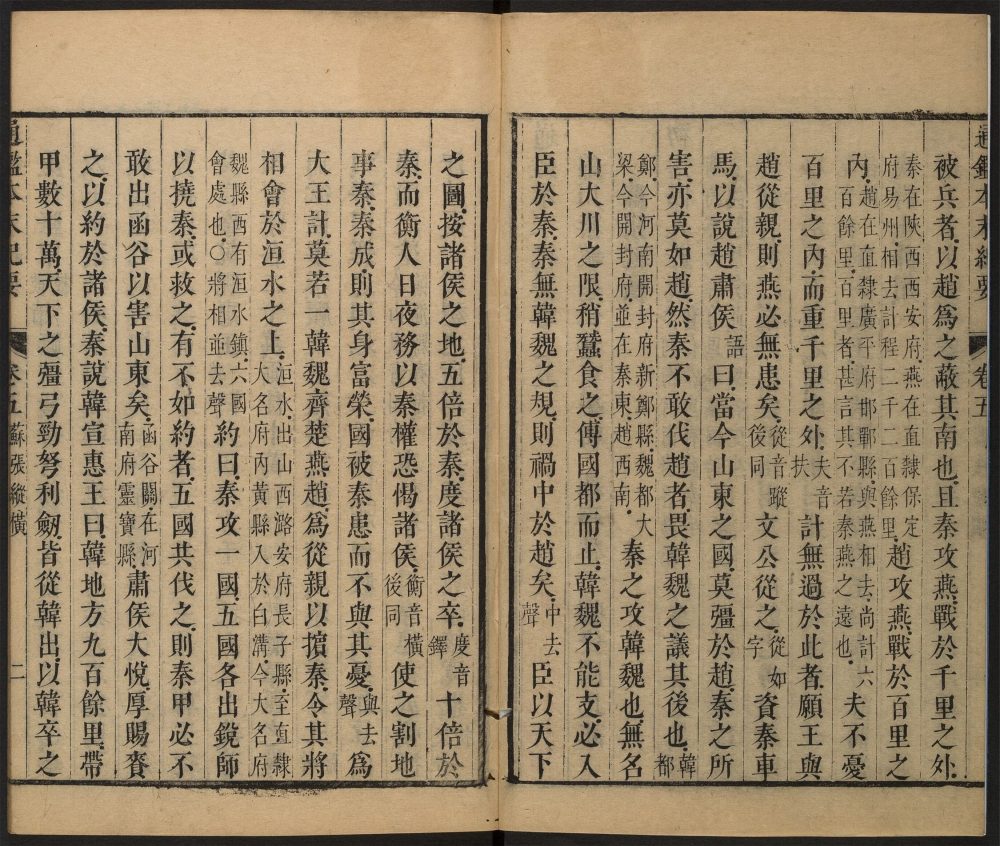 通鑑本末紀要 卷五
被兵者以趙爲之蔽其南也且秦攻燕戰於千里之外
秦在陝西西安府燕在直隸保定府易州相去計程二千二百餘里趙攻燕戰於百里之
內趙在直隸廣平府邯鄲縣與燕相去尚計六百餘里百里者甚言其不若秦燕之遠也夫不憂
百里之內而重千里之外夫音扶計無過於此者願王與
趙從親則燕必無患矣從音蹤後同文公從之從如字資秦車
馬以說趙肅侯語曰當今山東之國莫彊於趙秦之所
害亦莫如趙然秦不敢伐趙者畏韓魏之議其後也韓都
鄭今河南開封府新鄭縣魏都大梁今開封府並在秦東趙西南秦之攻韓魏也無名
山大川之限稍蠶食之傅國都而止韓魏不能支必入
臣於秦秦無韓魏之規則禍中於趙矣中去聲臣以天下
之圖按諸侯之地五倍於秦度諸侯之卒度音鐸十倍於
秦而衡人日夜務以秦權恐愒諸侯衡音橫後同使之割地
事秦秦成則其身富榮國被秦患而不與其憂與去聲爲
大王計莫若一韓魏齊楚燕趙爲從親以擯秦令其將
相會於洹水之上洹水出山西潞安府長子縣至直隸大名府內黃縣入於白溝今大名府
魏縣西有洹水鎮六國會處也○將相並去聲約曰秦攻一國五國各出銳師
以撓秦或救之有不如約者五國共伐之則秦甲必不
敢出函谷以害山東矣函谷關在河南府靈寶縣肅侯大悅厚賜賚
之以約於諸侯秦說韓宣惠王曰韓地方九百餘里帶
甲數十萬天下之彊弓勁弩利劒皆從韓出以韓卒之
通鑑本末紀要 卷五 蘇張縱橫 二